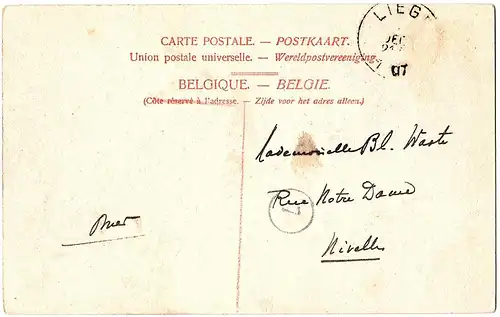 CARTE POSTALE. — POSTKAART.
Union postale universelle. — Wereldpostvereeniging.
BELGIQUE. — BELGIE.
(Côte réservé à l'adresse. — Zijde voor het adres alleen.)
LIEG
DEC
07
Mademoiselle Bl. Waste
Rue Notre Dame
7
Nivelles